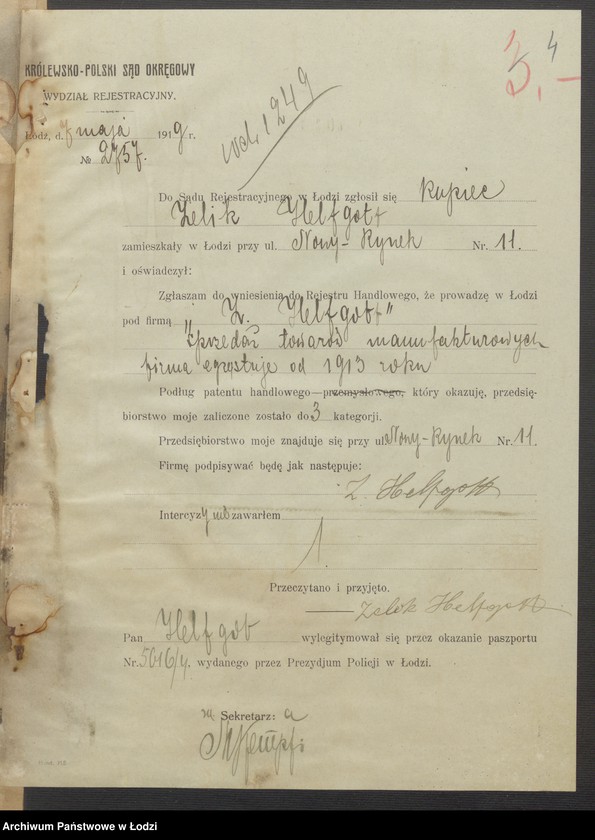 3,– 4
KRÓLEWSKO-POLSKI SĄD OKRĘGOWY
WYDZIAŁ REJESTRACYJNY.
Łódź, d. 7 maja 1919 r.
№ 2757.
1249
Do Sądu Rejestracyjnego w Łodzi zgłosił się kupiec
Zelik Helfgott
zamieszkały w Łodzi przy ul. Nowy-Rynek Nr. 11.
i oświadczył:
Zgłaszam do wniesienia do Rejestru Handlowego, że prowadzę w Łodzi
pod firmą „Z. Helfgott”
sprzedaż towarów manufakturowych
firma egzystuje od 1913 roku
Podług patentu handlowego—przemysłowego, który okazuję, przedsię-
biorstwo moje zaliczone zostało do 3 kategorji.
Przedsiębiorstwo moje znajduje się przy ul. Nowy-Rynek Nr. 11.
Firmę podpisywać będę jak następuje:
Z. Helfgott
Intercyzy nie zawarłem
Przeczytano i przyjęto.
Zelik Helfgott
Pan Helfgot wylegitymował się przez okazanie paszportu
Nr. 5016/4. wydanego przez Prezydjum Policji w Łodzi.
Sekretarz:
Archiwum Państwowe w Łodzi